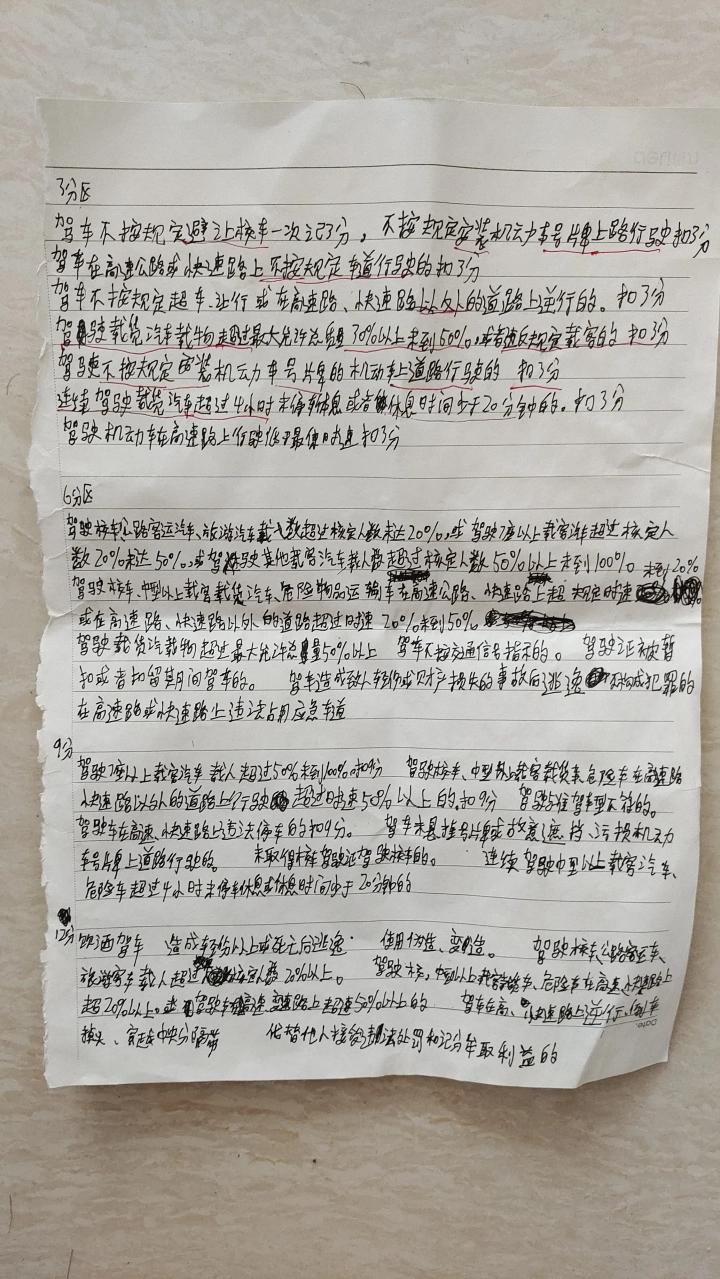 3分区
驾车不按规定避让校车一次记3分，不按规定安装机动车号牌上路行驶扣3分
驾车在高速公路或快速路上不按规定车道行驶的扣3分
驾车不按规定超车.让行或在高速路、快速路以外的道路上逆行的。扣3分
驾驶载货汽车载物超过最大允许总质量30%以上未到50%,或者违反规定载客的 扣3分
驾驶不按规定安装机动车号牌的机动车上道路行驶的 扣3分
连续驾驶载货汽车超过4小时未停车休息或者休息时间少于20分钟的。扣3分
驾驶机动车在高速路上行驶低于最低时速扣3分
6分区
驾驶校车公路客运汽车、旅游汽车载人数超过核定人数未达20%,或驾驶7座以上载客汽车超过核定人
数20%未达50%,或驾驶其他载客汽车载人数超过核定人数50%以上未到100%
未到20%
驾驶校车、中型以上载客载货汽车、危险物品运输车在高速公路、快速路上超规定时速
或在高速路、快速路以外的道路超过时速20%未到50%
驾驶载货汽载物超过最大允许总量50%以上 驾车不按交通信号指示的。 驾驶证被暂
扣或者扣留其间驾车的。 驾车造成致人轻伤或财产损失的事故后逃逸不构成犯罪的
在高速路或快速路上违法占用应急车道
9分
驾驶7座以上载客汽车载人超过50%未到100%的扣9分 驾驶校车、中型以上载客载货车危险车在高速路
快速路以外的道路上行驶超过时速50%以上的.扣9分 驾驶与准驾车型不符的。
驾驶车在高速、快速路上违法停车的扣9分。 驾车未悬挂号牌或故意遮挡、污损机动
车号牌上道路行驶的。 未取得校车驾驶证驾驶校车的。 连续驾驶中型以上载客汽车、
危险车超过4小时未停车休息或休息时间少于20分钟的
12分
饮酒驾车 造成轻伤以上或死亡后逃逸 使用伪造、变造。 驾驶校车公路客运车、
旅游客车载人超过核定人数20%以上。 驾驶校,中型以上载客货车、危险车在高速快速路上
超20%以上。或驾驶车高速.快速路上超速50%以上的 驾车在高、快速路上逆行,倒车
掉头、穿越中央分隔带 代替他人接受违法处罚和记分牟取利益的
Date.